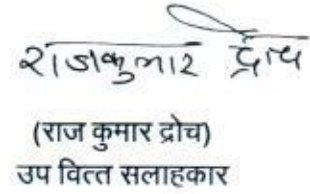 राजकुमार द्रोच
(राज कुमार द्रोच)
उप वित्त सलाहकार